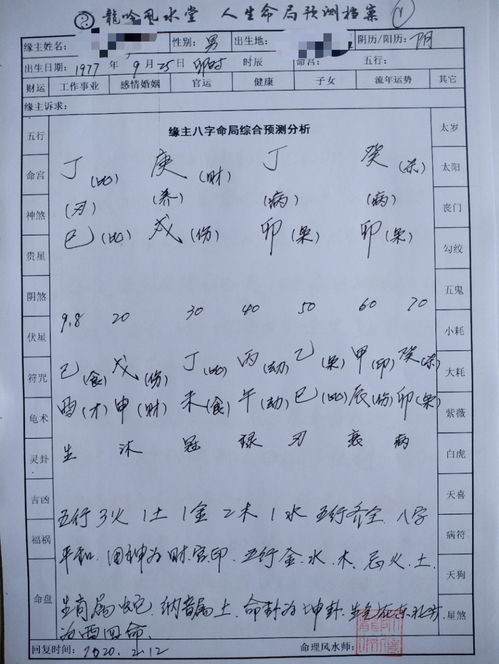 龍吟风水堂 人生命局预测档案
缘主姓名: 性别: 男 出生地: 阴历/阳历: 阴
出生日期: 1977 年 9 月 25 日 卯时 时辰 命宫: 五行:
财运 工作事业 感情婚姻 官运 健康 子女 流年运势 其它
缘主诉求:
五行 缘主八字命局综合预测分析 太岁
命宫 丁(比) 庚(财) 丁 癸(杀) 太阳
神煞 (刃) (养) (病) (病) 丧门
贵星 巳(比) 戌(伤) 卯(枭) 卯(枭) 勾绞
阴煞 五鬼
伏星 9.8 20 30 40 50 60 70 小耗
符咒 己(食) 戊(伤) 丁(比) 丙(劫) 乙(枭) 甲(印) 癸(杀) 大耗
龟术 酉(才) 申(财) 未(食) 午(劫) 巳(比) 辰(伤) 卯(枭) 紫薇
灵卦 生 沐 冠 禄 刃 衰 病 白虎
吉凶 天喜
福祸 五行3火1土1金2木1水 五行齐全.八字 病符
平和.用神为财官印.五行金.水.木.忌火.土. 天狗
命盘 生肖属蛇.纳音属土.命卦为坤卦. 星煞
为西四命.
回复时间: 2020.2.12 命理风水师: